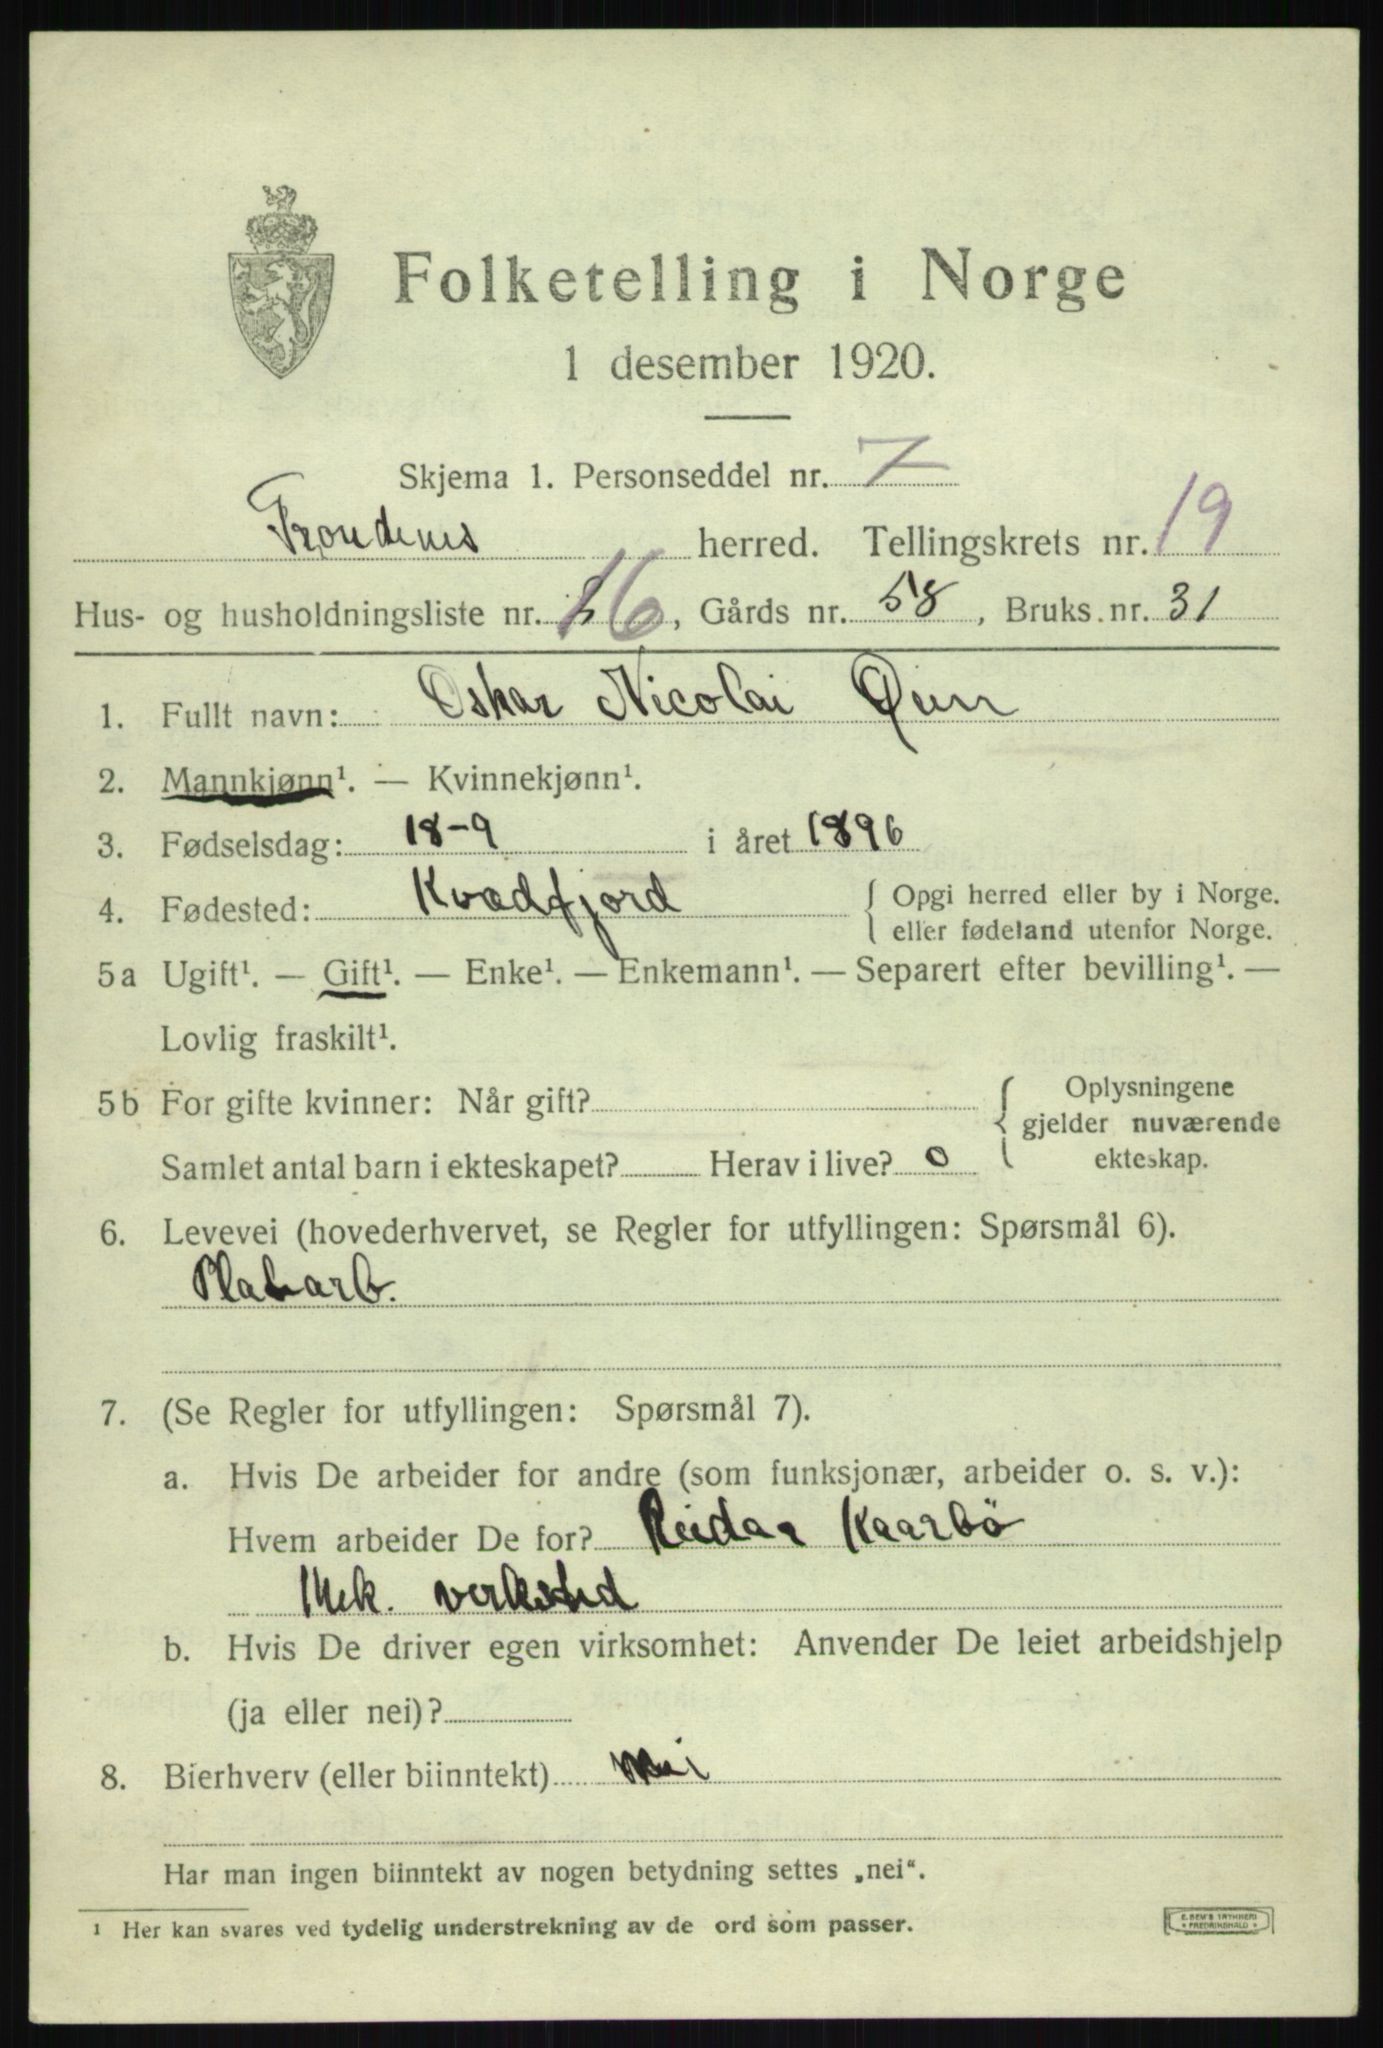 Folketelling i Norge
1 desember 1920.
Skjema 1. Personseddel nr. 7
Trondenes herred. Tellingskrets nr. 19
Hus- og husholdningsliste nr. 16, Gårds nr. 58, Bruks nr. 31
1. Fullt navn: Oskar Nicolai
2. Mannkjønn¹. — Kvinnekjønn¹.
3. Fødselsdag: 18-9 i året 1896
4. Fødested: Kvædfjord { Opgi herred eller by i Norge.
eller fødeland utenfor Norge.
5a Ugift¹. — Gift¹. — Enke¹. — Enkemann¹. — Separert efter bevilling¹. —
Lovlig fraskilt¹.
5b For gifte kvinner: Når gift? { Oplysningene
gjelder nuværende
Samlet antal barn i ekteskapet? Herav i live? 0 ekteskap.
6. Levevei (hovederhvervet, se Regler for utfyllingen: Spørsmål 6).
Platearb.
7. (Se Regler for utfyllingen: Spørsmål 7).
a. Hvis De arbeider for andre (som funksjonær, arbeider o. s. v.):
Hvem arbeider De for? Reidar Kaarbö
Mek. verksted
b. Hvis De driver egen virksomhet: Anvender De leiet arbeidshjelp
(ja eller nei)?
8. Bierhverv (eller biinntekt) nei
Har man ingen biinntekt av nogen betydning settes „nei“.
¹ Her kan svares ved tydelig understrekning av de ord som passer.
E. SEM'S TRYKKERI
• FREDRIKSHALD •